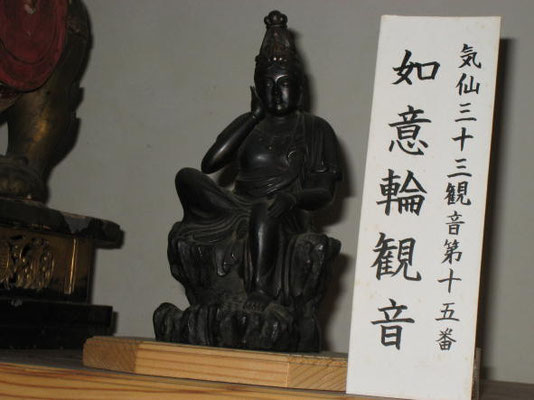 気仙三十三観音第十五番
如意輪観音